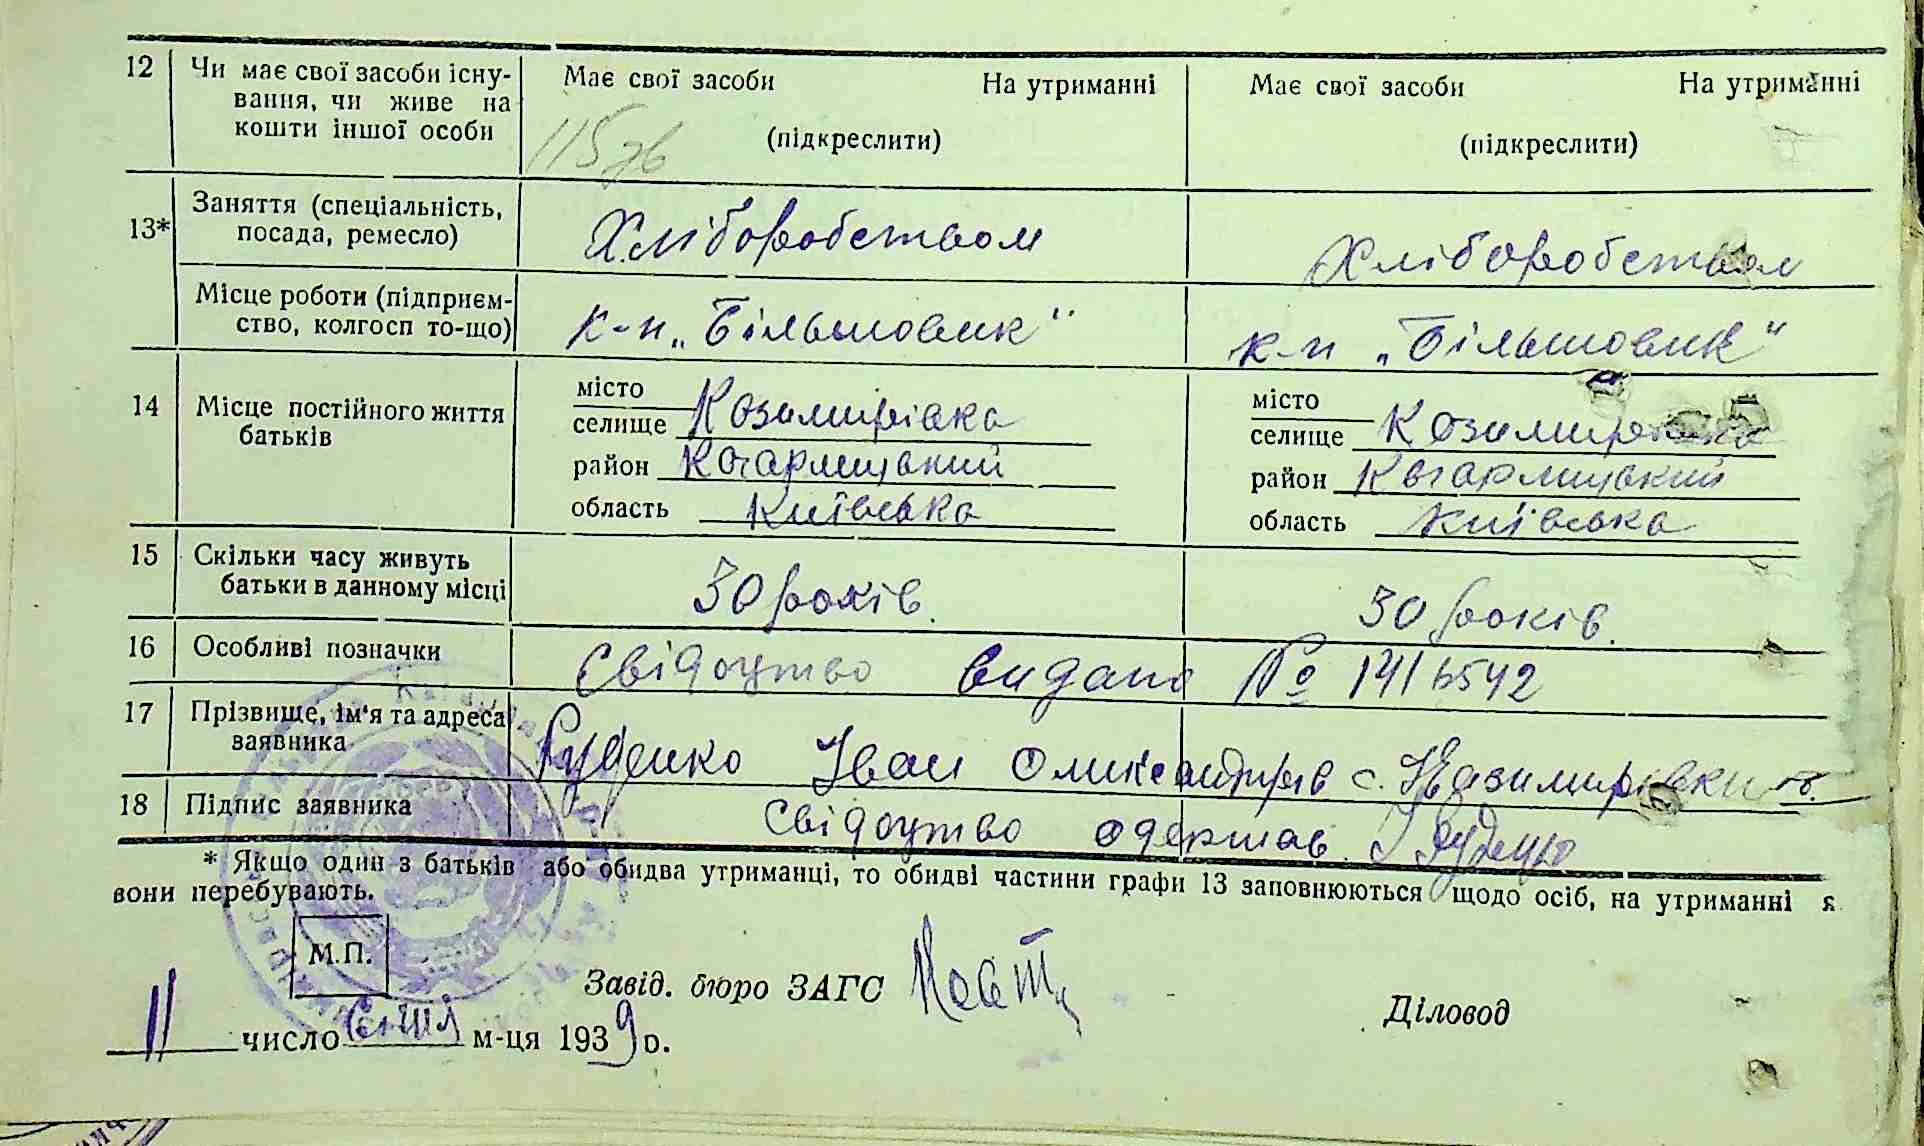 12 Чи має свої засоби існу- Має свої засоби На утриманні Має свої засоби На утриманні
вання, чи живе на
кошти іншої особи (підкреслити) (підкреслити)
115
13* Заняття (спеціальність, посада, ремесло) Хліборобством Хліборобством
Місце роботи (підприєм- к-п „Більшовик" к-п „Більшовик"
ство, колгосп то-що)
14 Місце постійного життя батьків
місто місто
селище Козимирівка селище Козимирівка
район Кагарлицький район Кагарлицький
область Київська область Київська
15 Скільки часу живуть
батьки в данному місці 30 років. 30 років.
16 Особливі позначки Свідоцтво видано №
17 Прізвище, ім'я та адреса
заявника Руденко Іван с.
18 Підпис заявника Свідоцтво одержав
* Якщо один з батьків або обидва утриманці, то обидві частини графи 13 заповнюються щодо осіб, на утриманні я
вони перебувають.
М.П.
Завід. бюро ЗАГС
Діловод
11 число м-ця 1939 р.